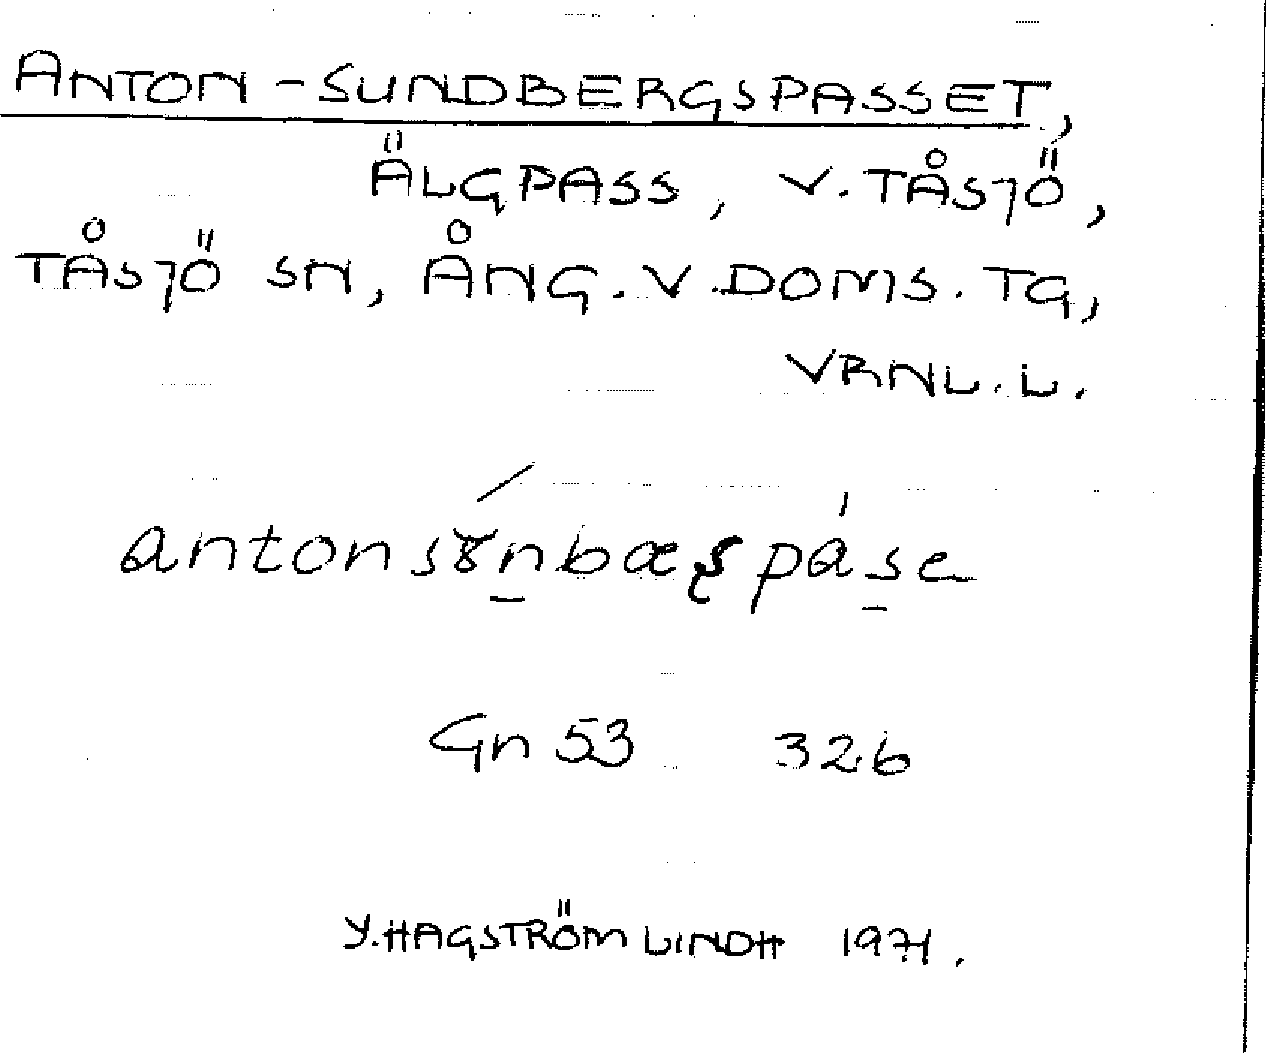 ANTON-SUNDBERGSPASSET,
ÄLGPASS, V. TÅSJÖ,
TÅSJÖ SN, ÅNG. V. DOMS. TG,
VRNL. L.
antonsɤnbæʂpásɐ
Gn 53 326
Y. HAGSTRÖM LINDH 1971.